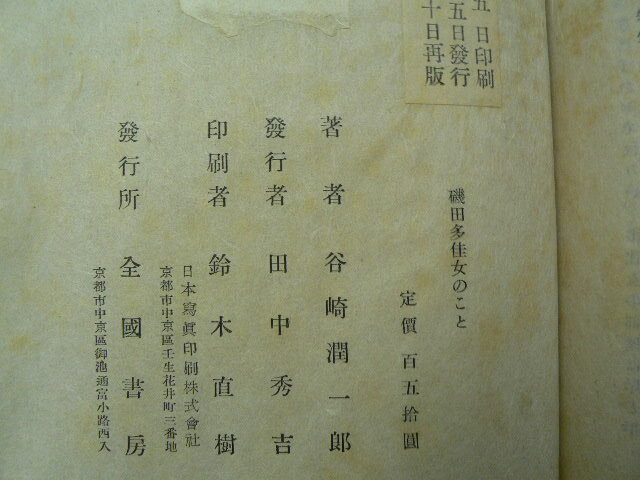 五日印刷
五日發行
十日再版
磯田多佳女のこと
定價 百五拾圓
著者 谷崎潤一郎
發行者 田中秀吉
印刷者 鈴木直樹
日本寫眞印刷株式會社
京都市中京區壬生花井町三番地
發行所 全國書房
京都市中京區御池通富小路西入